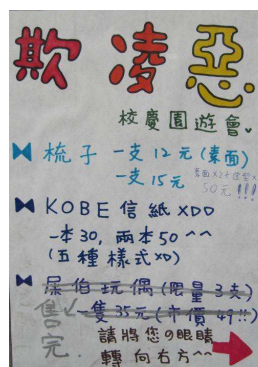 欺凌惡
校慶園遊會
梳子 一支12元(素面)
一支15元
50元!!!
KOBE信紙XDD
一本30,兩本50^^
(五種樣式XD)
屎伯玩偶(限量3隻)
售完 一隻35元(市價49!!)
請將您の眼睛
轉向右方^^